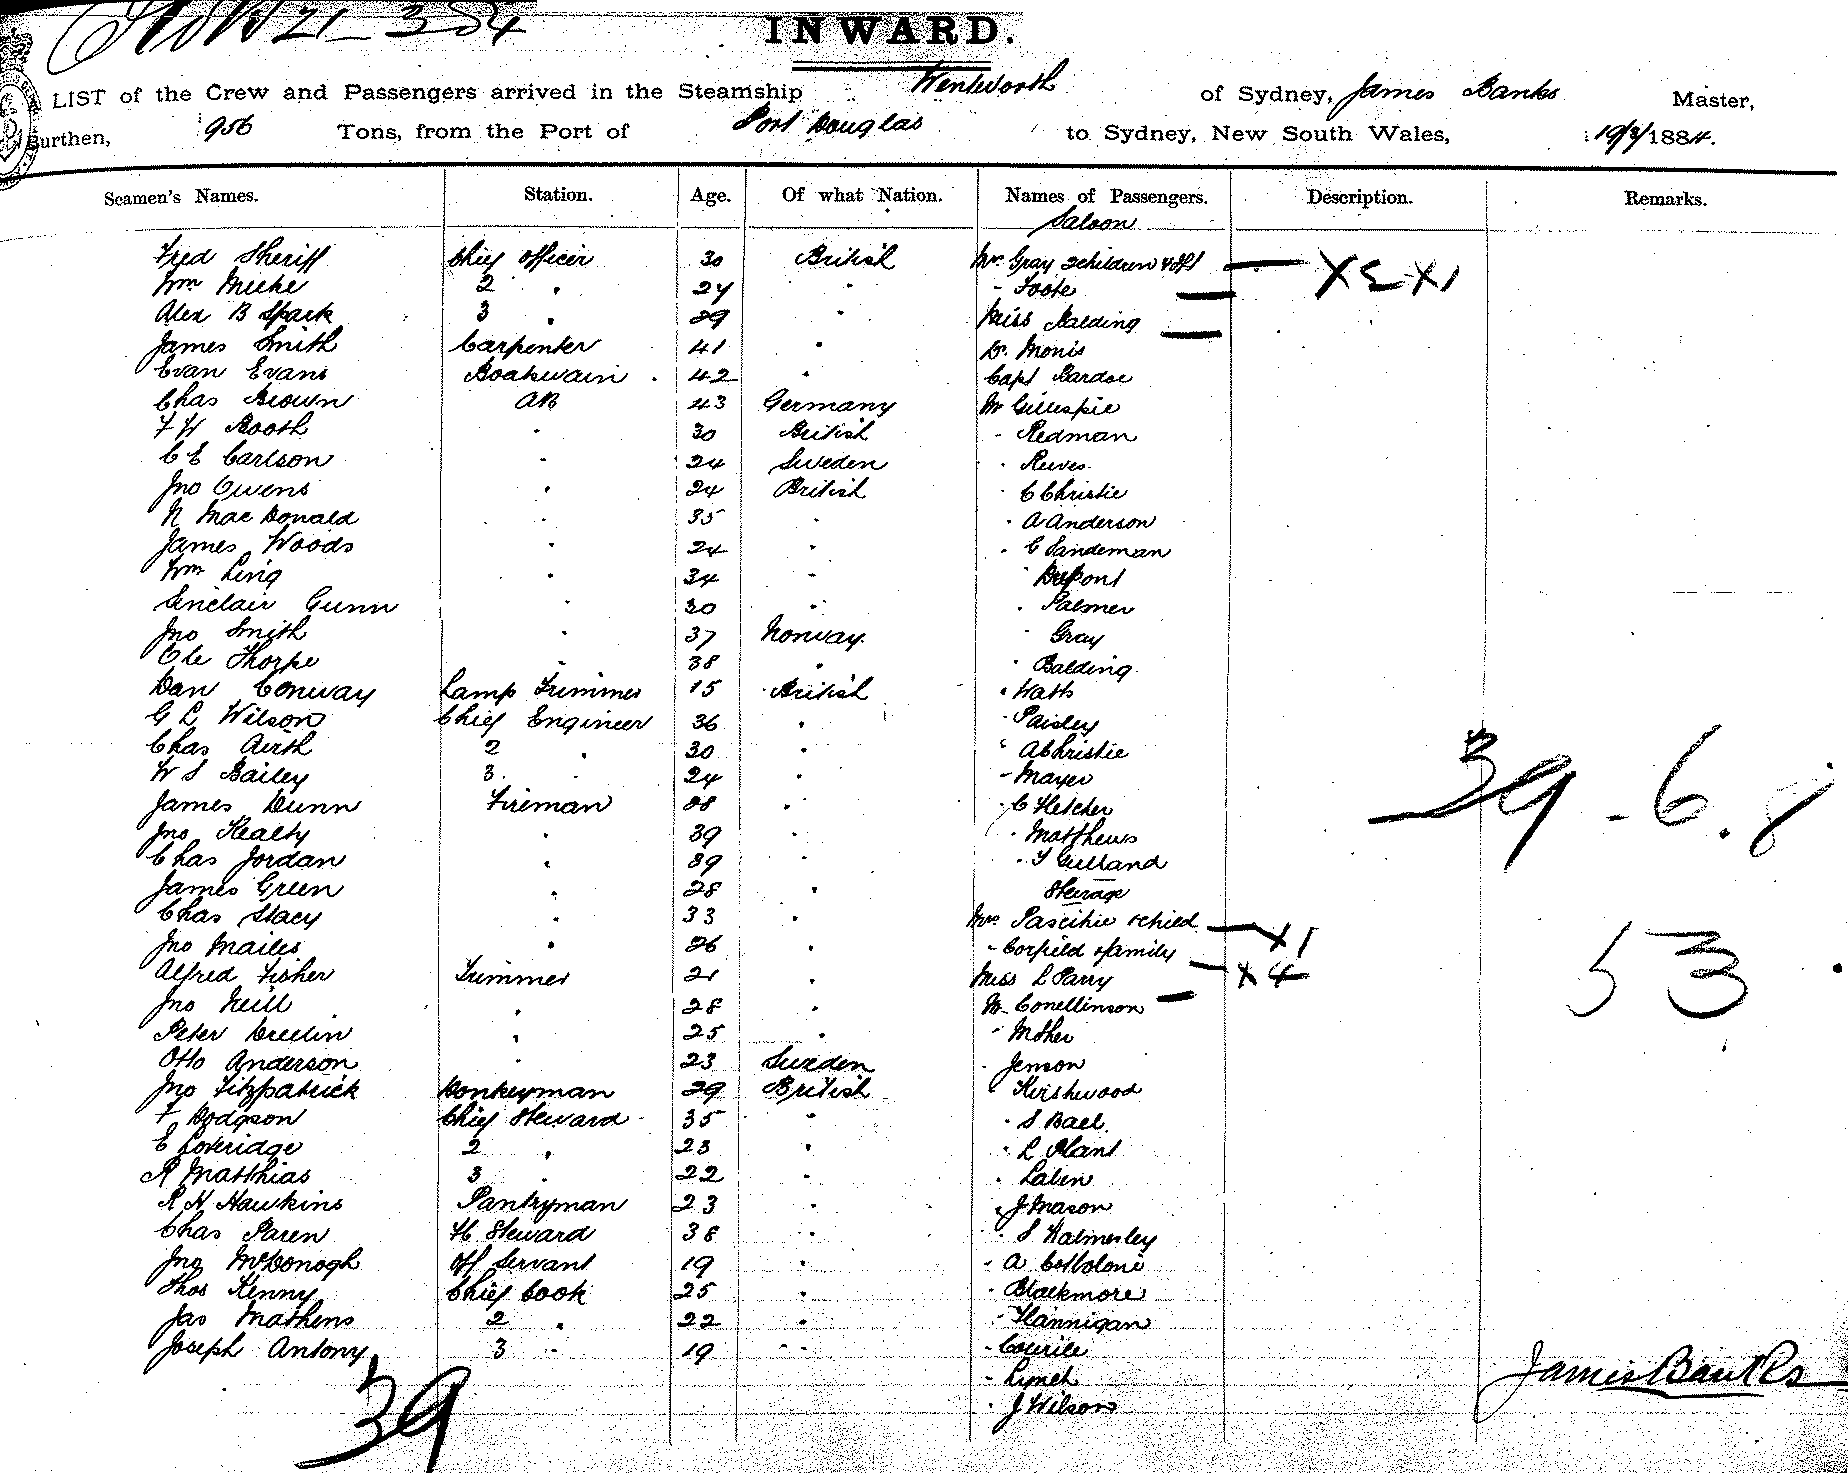 INWARD.
LIST of the Crew and Passengers arrived in the Steamship Wentworth of Sydney, James Banks Master,
Burthen, 956 Tons, from the Port of Port Douglas to Sydney, New South Wales, 19/3/1884.
Seamen's Names. Station. Age. Of what Nation. Names of Passengers. Description. Remarks.
Saloon
Fred Sheriff Chief Officer 30 British Mrs Gray 2 children & Sert X2 X1
Wm Mieke 2 " 24 " " Foote
Alex B Spark 3 " 29 " Miss Balding
James Smith Carpenter 41 " Dr. Monis
Evan Evans Boatswain 42 " Capt Bardoe
Chas Brown AB 43 Germany Mr Gillespie
F W Booth " 30 British " Redman
C E Carlson " 24 Sweden " Reeves
Jno Owens " 24 British " C Christie
N MacDonald " 35 " " A Anderson
James Woods " 24 " " C Sandeman
Wm Ling " 34 " " DuPont
Sinclair Gunn " 30 " " Palmer
Jno Smith " 37 Norway " Gray
Ole Thorpe " 38 " " Balding
Dan Conway Lamp Trimmer 15 British " Watts
G L Wilson Chief Engineer 36 " " Paisley
Chas Airth 2 " 30 " " A Christie
W S Bailey 3 " 24 " " Mayer 39 - 6.
James Dunn Fireman 28 " " C Fletcher
Jno Healty " 39 " " Matthews
Chas Jordan " 39 " " T Gulland
James Green " 28 " Steerage
Chas Stacy " 33 " Mrs Pascihie & child X1
Jno Mailes " 26 " " Corfield & family X4 53
Alfred Fisher Trimmer 21 " Miss L Parry
Jno Neill " 28 " Mr Conellinson
Peter Devlin " 25 " " Mother
Otto Anderson " 23 Sweden " Jenson
Jno Fitzpatrick Donkeyman 29 British " Kirshwood
F Hodgson Chief Steward 35 " " S Bael
E Loveridge 2 " 23 " " L Plant
R Matthias 3 " 22 " " Laben
R H Hawkins Pantryman 23 " " J Mason
Chas Paren FC Steward 38 " " S Walmesley
Jno McDonogh Off Servant 19 " " A
Thos Kenny Chief Cook 25 " " Blackmore
Jas Mathens 2 " 22 " " Hannigan
Joseph Antony 3 " 19 " "
" Lynch
" J Wilson
39
James Banks